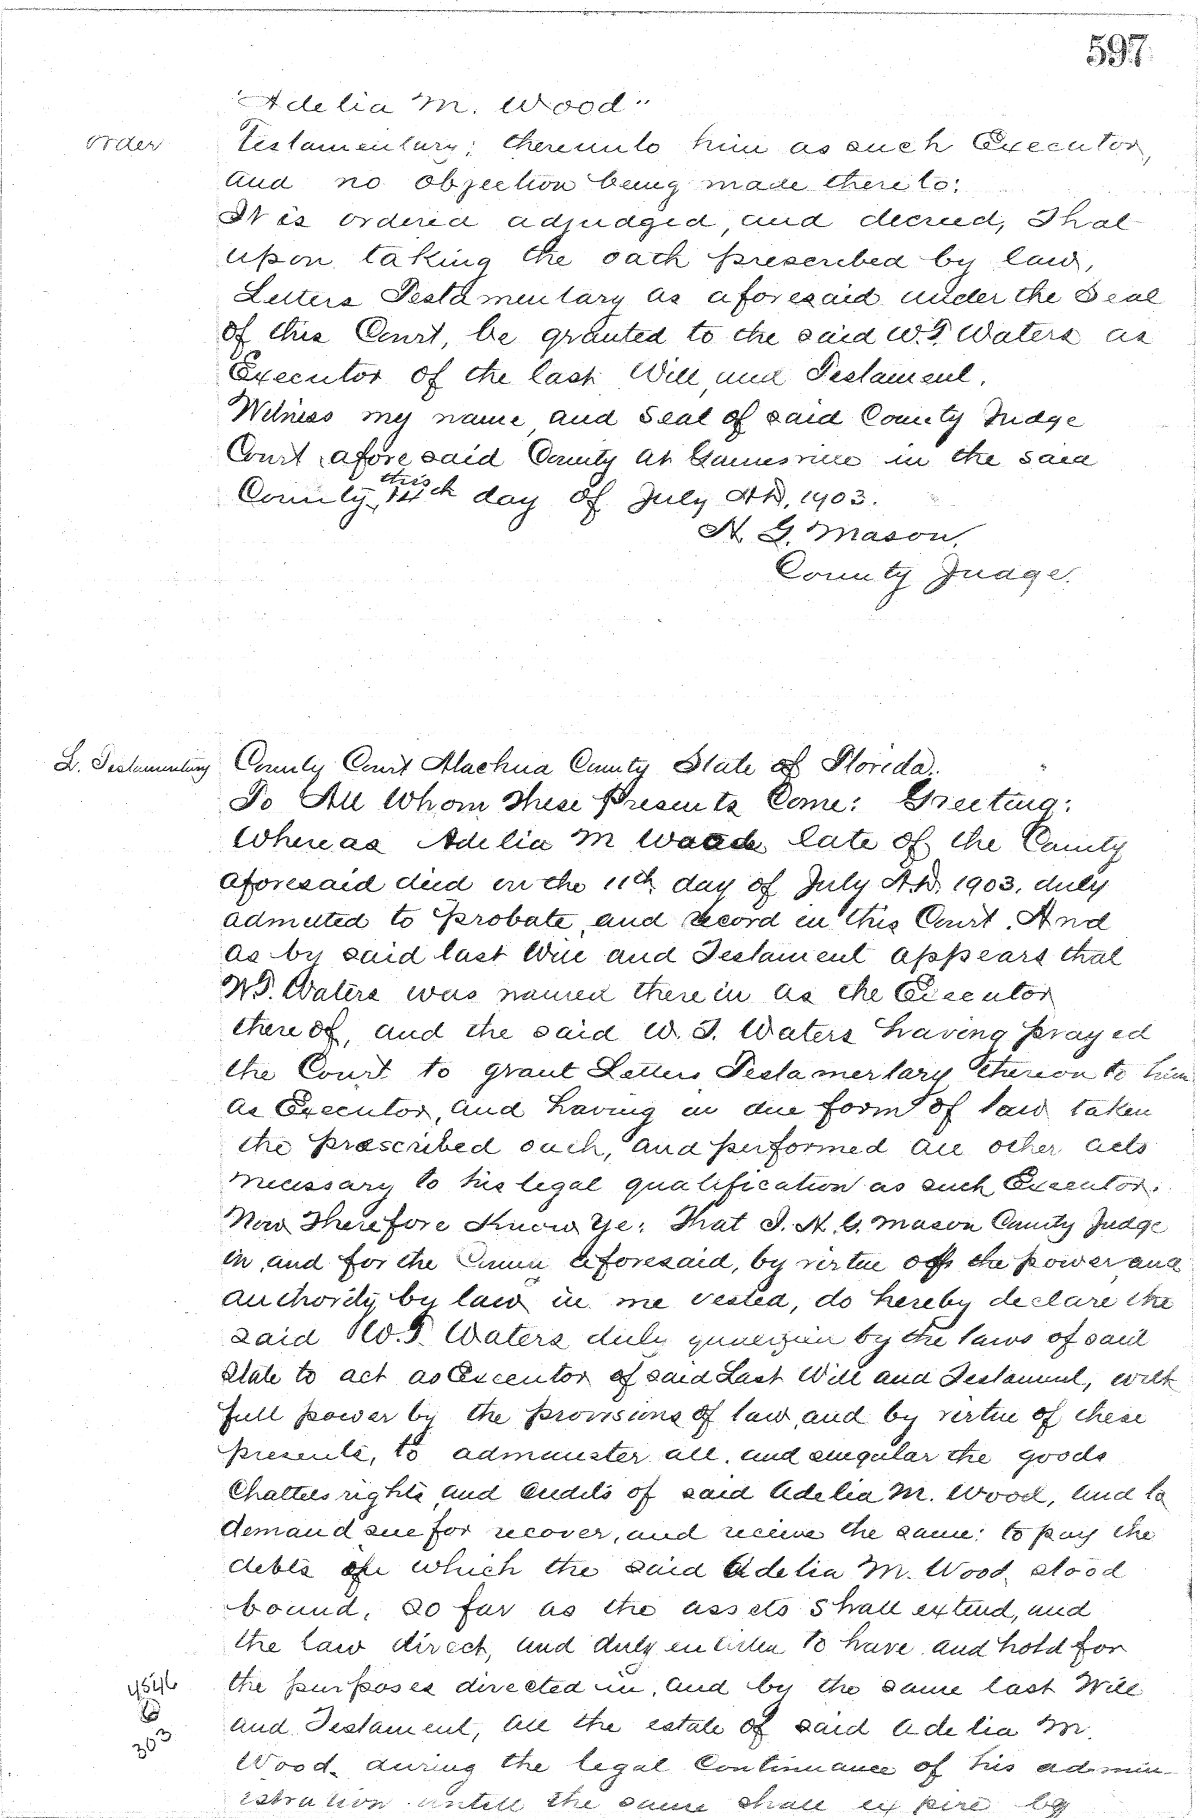 597
"Adelia M. Wood"
order
Testamentary; thereunto him as such Executor,
and no objection being made thereto;
It is ordered adjudged, and decreed, That
upon taking the oath prescribed by law,
Letters Testamentary as aforesaid under the Seal
of this Court, be granted to the said W.T. Waters as
Executor of the last Will, and Testament.
Witness my name, and Seal of said County Judge
Court, aforesaid County at Gainesville in the said
County, this 14th day of July A.D. 1903.
H. G. Mason,
County Judge.
L. Testamentary
County Court Alachua County State of Florida.
To All Whom These Presents Come: Greeting:
Whereas Adelia M Wood late of the County
aforesaid died on the 11th day of July A.D. 1903. duly
admitted to probate, and record in this Court. And
as by said last Will and Testament appears that
W.T. Waters was named therein as the Executor
thereof, and the said W. T. Waters having prayed
the Court to grant Letters Testamentary thereon to him
as Executor, and having in due form of law taken
the prescribed oath, and performed all other acts
necessary to his legal qualification as such Executor.
Now Therefore Know Ye: That I. H. G. Mason County Judge
in, and for the County aforesaid, by virtue of the power and
authority by law in me vested, do hereby declare the
said W.T Waters duly by the laws of said
State to act as Executor of said Last Will and Testament, with
full power by the provisions of law, and by virtue of these
presents, to administer all, and singular the goods
Chattels rights, and credits of said Adelia M. Wood, and to
demand sue for recover, and receive the same: to pay the
debts in which the said Adelia M. Wood, stood
bound, so far as the assets shall extend, and
the law direct, and duly entitled to have, and hold for
the purposes directed in, and by the same last Will
and Testament, all the estate of said Adelia M.
Wood, during the legal Continuance of his admin-
istration untill the same shall expire by
4546
6
303